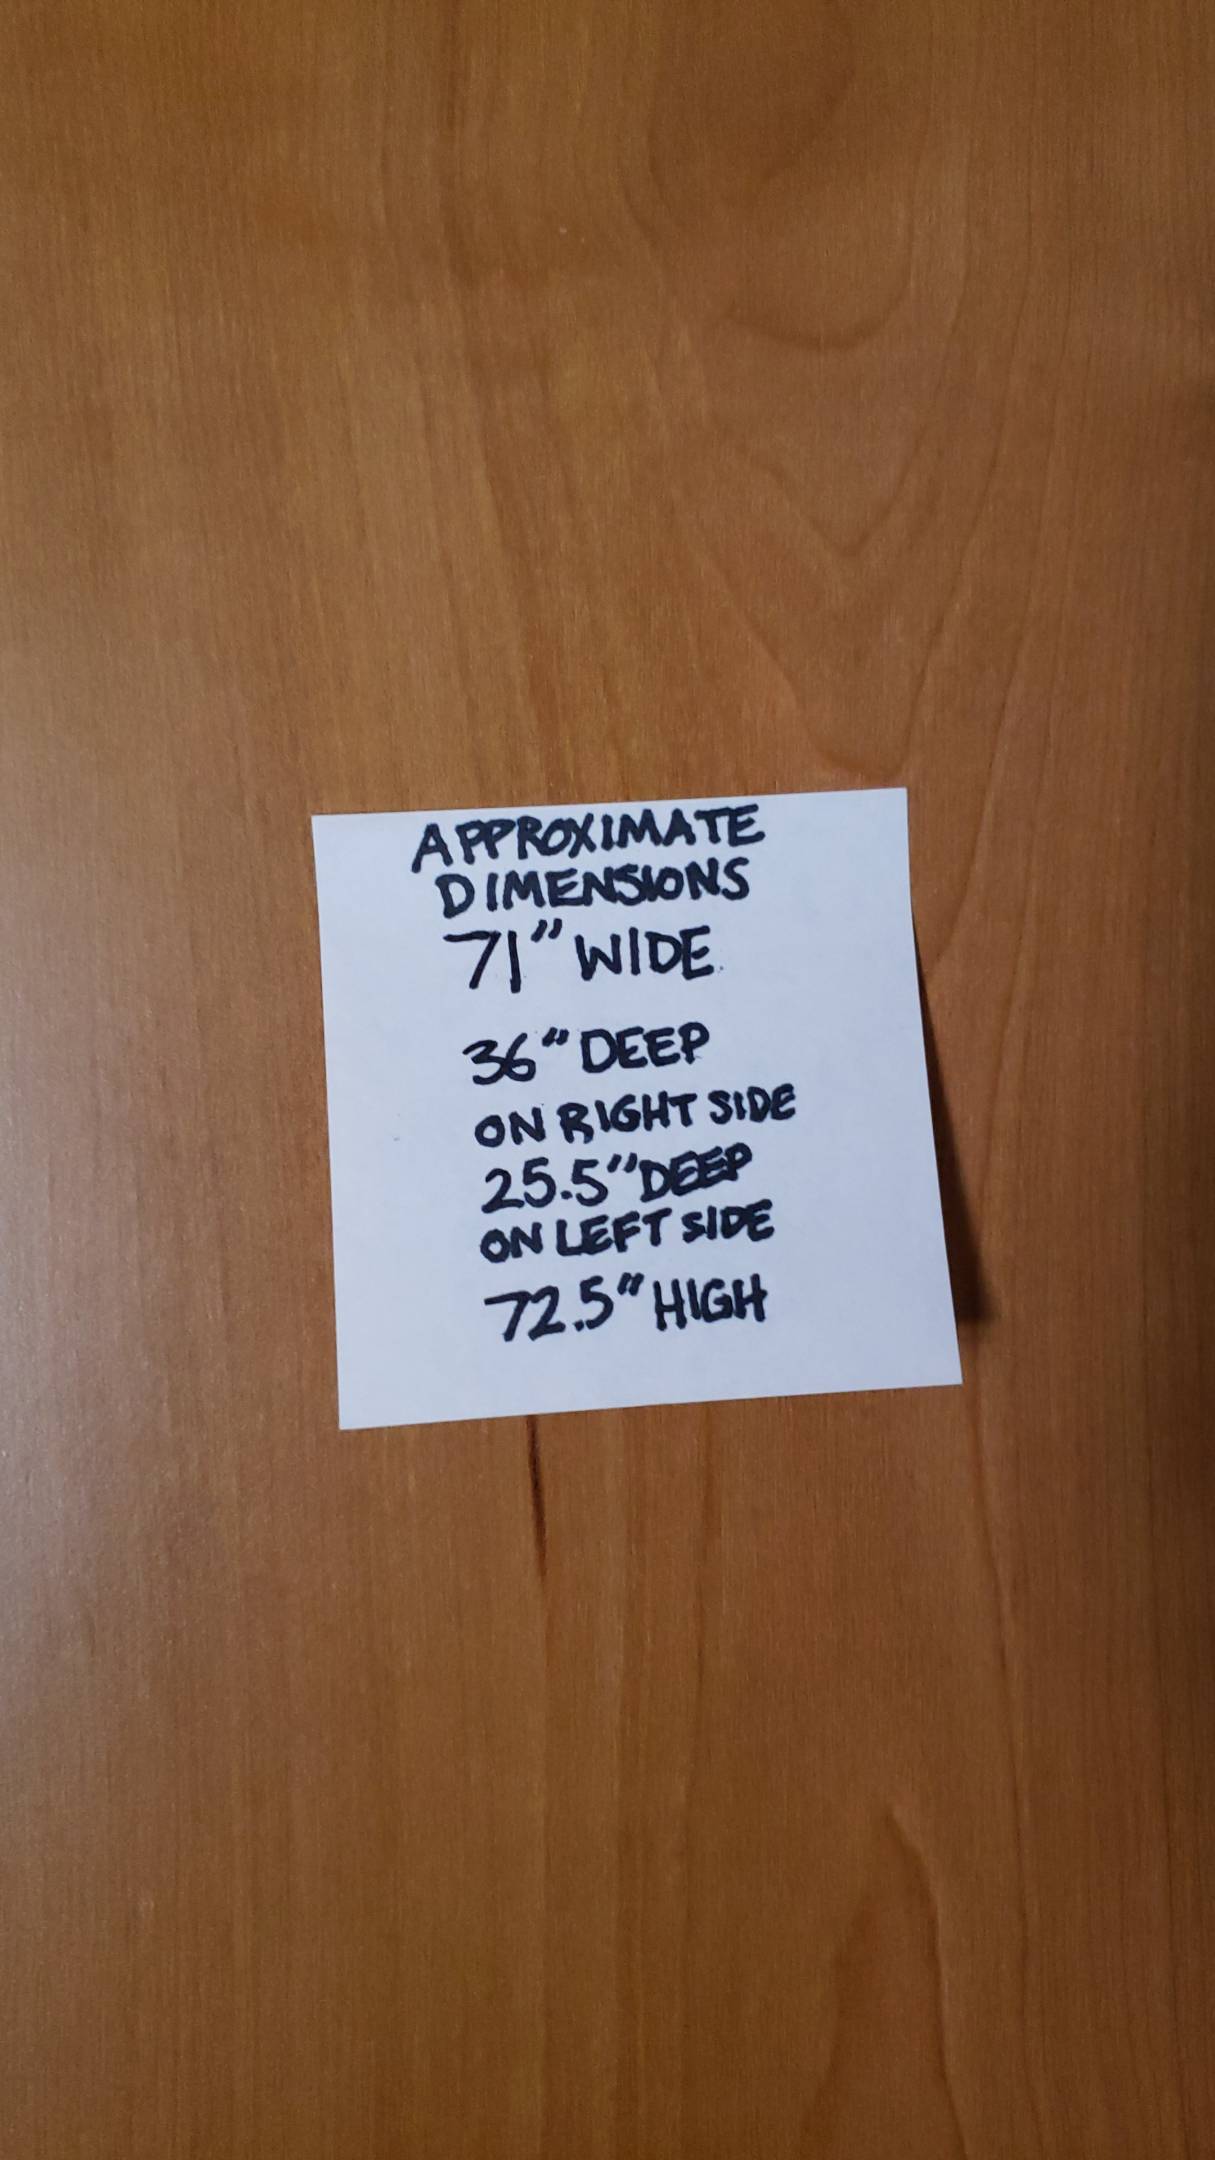 APPROXIMATE
DIMENSIONS
71" WIDE
36" DEEP
ON RIGHT SIDE
25.5" DEEP
ON LEFT SIDE
72.5" HIGH